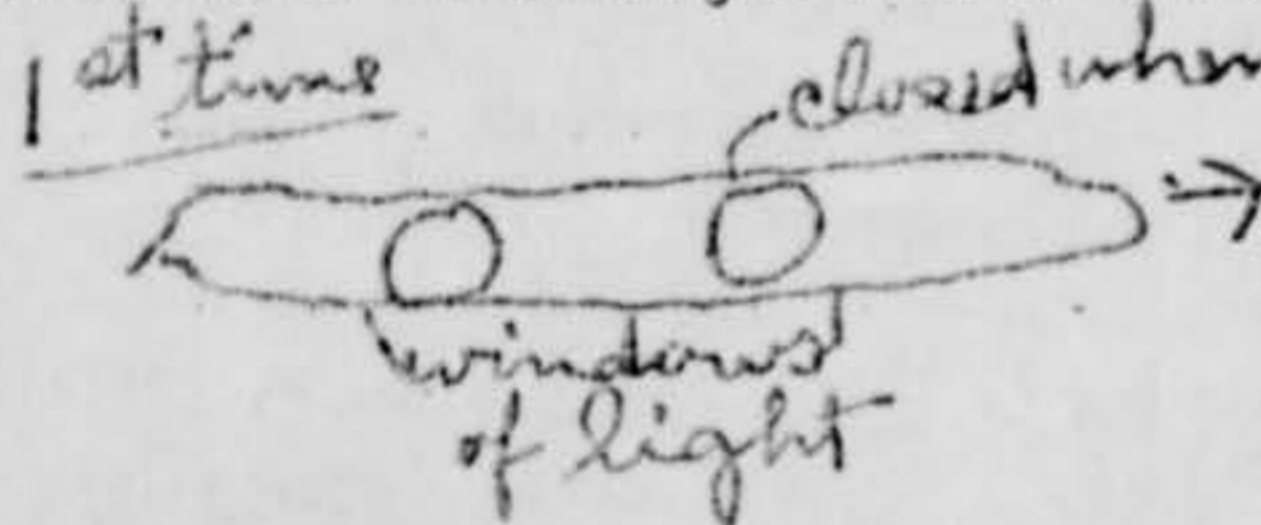 1st time
closed when
windows
of light